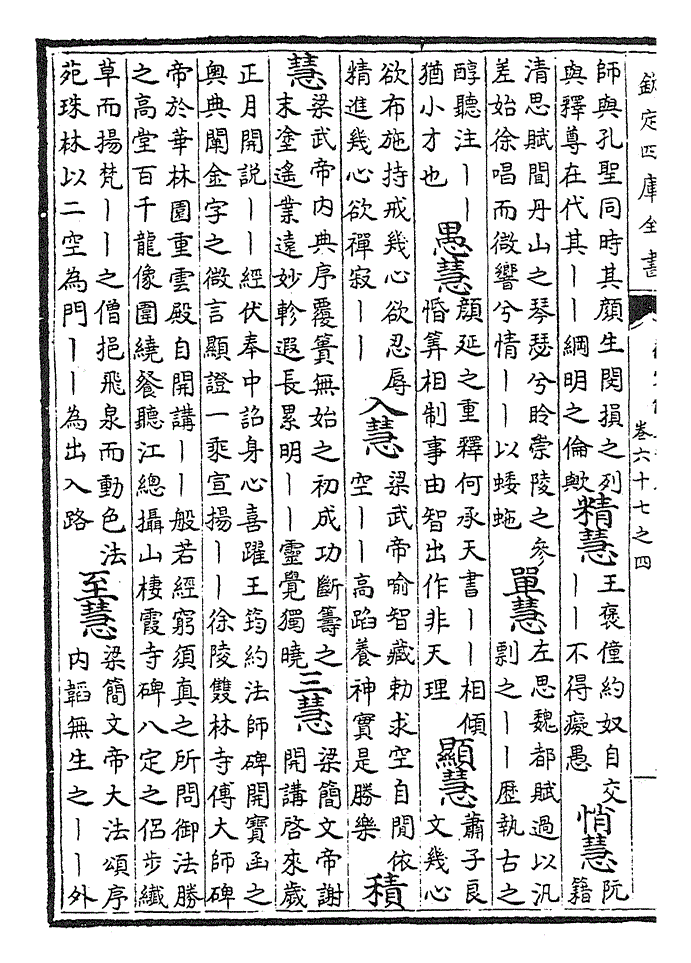 欽定四庫全書
卷六十七之四
師與孔聖同時其顏生閔損之列
與釋尊在代其丨丨綱明之倫歟
精慧
王褒僮約奴自交
丨丨不得癡愚
悄慧
阮
籍
清思賦聞丹山之琴瑟兮聆崇陵之參
差始徐唱而微響兮情丨丨以蜲虵
單慧
左思魏都賦過以汎
剽之丨丨歴執古之
醇聽注丨丨
猶小才也
愚慧
顏延之重釋何承天書丨丨相傾
惛筭相制事由智出作非天理
顯慧
蕭子良
文幾心
欲布施持戒幾心欲忍辱
精進幾心欲禪寂丨丨
入慧
梁武帝喻智藏勅求空自閒依
空丨丨高蹈養神實是勝樂
積
慧
梁武帝内典序覆簣無始之初成功斷籌之
末塗遙業遠妙軫遐長累明丨丨靈覺獨曉
三慧
梁簡文帝謝
開講啓來歲
正月開説丨丨經伏奉中詔身心喜躍王筠約法師碑開寶函之
奧典闡金字之微言顯證一乘宣揚丨丨徐陵雙林寺傅大師碑
帝於華林園重雲殿自開講丨丨般若經窮須真之所問御法勝
之高堂百千龍像圍繞餐聽江總攝山棲霞寺碑八定之侣步纖
草而揚梵丨丨之僧挹飛泉而動色法
苑珠林以二空為門丨丨為出入路
至慧
梁簡文帝大法頌序
内韜無生之丨丨外